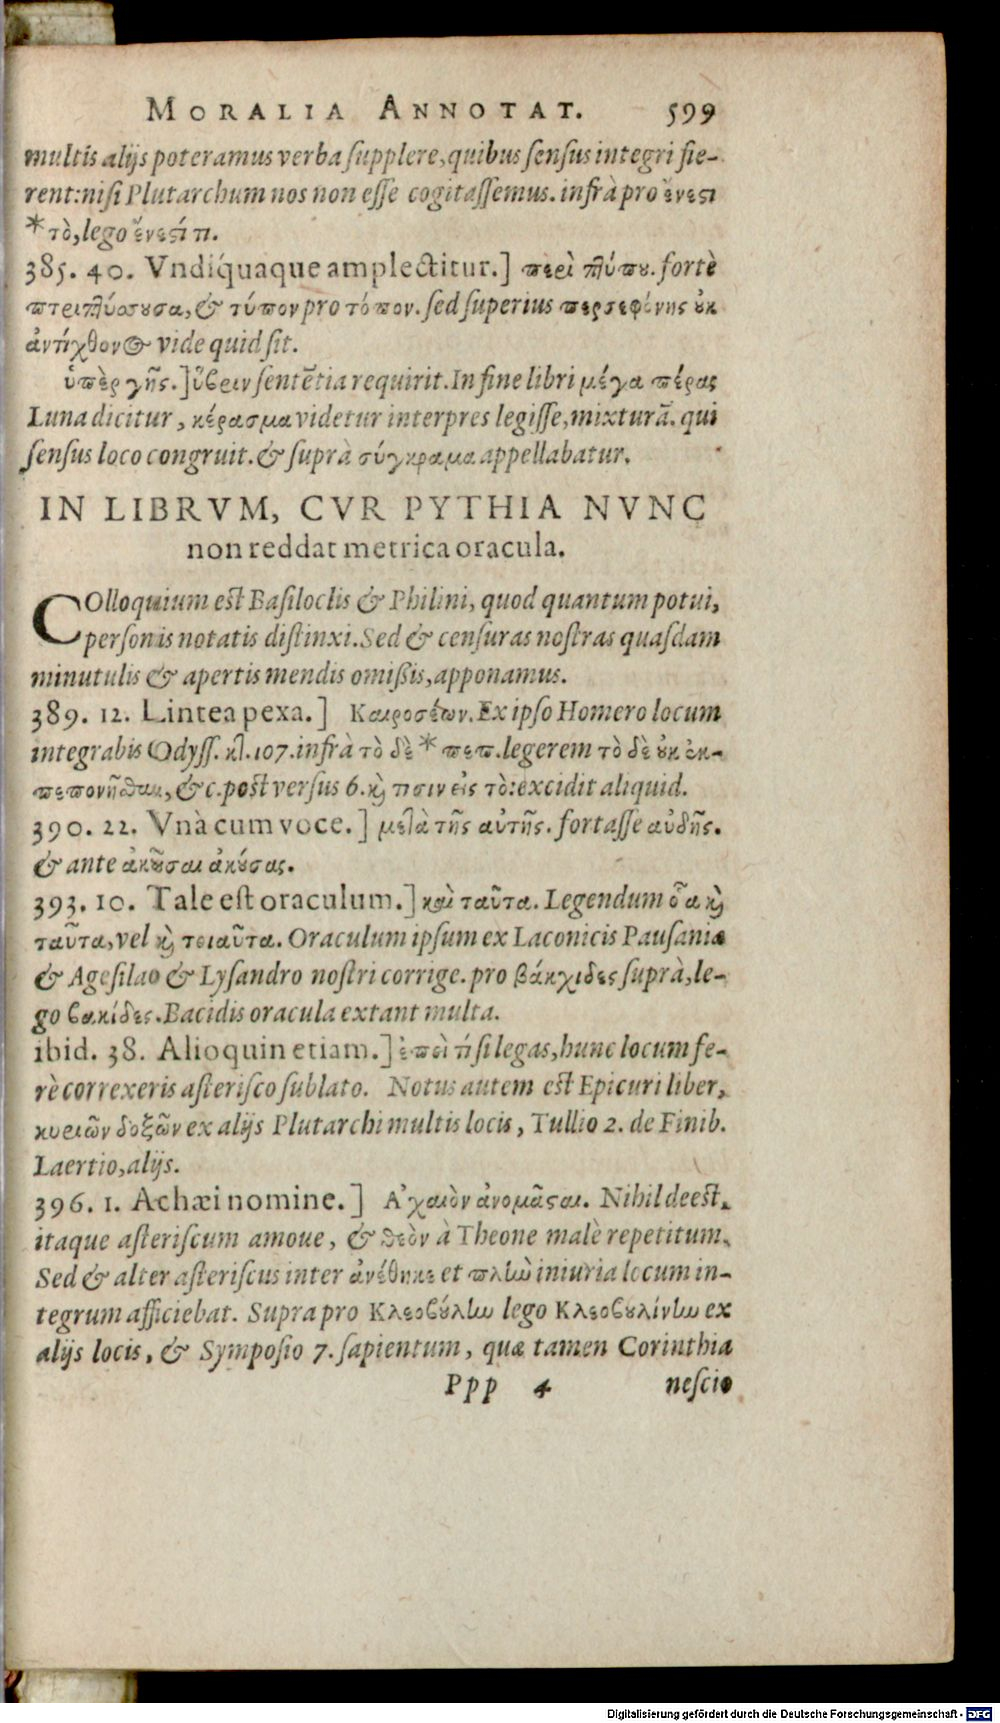 MORALIA ANNOTAT. 599
multis alijs poteramus verba supplere, quibus sensus integri fie-
rent: nisi Plutarchum nos non esse cogitassemus. infrà pro ἔνεστι
* τὸ, lego ἔνεστί τι.
385. 40. Vndiquaque amplectitur.] περὶ πλύπου. fortè
πτριπλύουσα, & τύπον pro τόπον. sed superius περσεφόνης οὐκ
ἀντίχθονος vide quid sit.
ὑπὲρ γῆς.] ὕβριν sentētia requirit. In fine libri μέγα πέρας
Luna dicitur, κέρασμα videtur interpres legisse, mixturā. qui
sensus loco congruit. & suprà σύγκραμα appellabatur.
IN LIBRVM, CVR PYTHIA NVNC
non reddat metrica oracula.
COlloquium est Basiloclis & Philini, quod quantum potui,
personis notatis distinxi. Sed & censuras nostras quasdam
minutulis & apertis mendis omißis, apponamus.
389. 12. Lintea pexa.] Καιροσέων. Ex ipso Homero locum
integrabis Odyss. 107. infrà τὸ δὲ * πεπ. legerem τὸ δὲ οὐκ ἐκ-
πεπονῆσθαι, &c. post versus 6. καὶ τισιν εἰς τὸ: excidit aliquid.
390. 22. Vnà cum voce.] μετὰ τῆς αὐτῆς. fortasse αὐδῆς.
& ante ἀκοῦσαι ἀκούσας.
393. 10. Tale est oraculum.] καὶ ταῦτα. Legendum οἷα καὶ
ταῦτα, vel καὶ τοιαῦτα. Oraculum ipsum ex Laconicis Pausaniæ
& Agesilao & Lysandro nostri corrige. pro βάκχιδες suprà, le-
go βακίδες. Bacidis oracula extant multa.
ibid. 38. Alioquin etiam.] ἐπεὶ τί si legas, hunc locum fe-
rè correxeris asterisco sublato. Notus autem est Epicuri liber,
κυριῶν δοξῶν ex alijs Plutarchi multis locis, Tullio 2. de Finib.
Laertio, alijs.
396. 1. Achæi nomine.] Ἀχαιὸν ἀνομᾶσαι. Nihil deest,
itaque asteriscum amoue, & θεὸν à Theone malè repetitum.
Sed & alter asteriscus inter ἀνέθηκε et πλὴν iniuria locum in-
tegrum afficiebat. Supra pro Κλεοβούλην lego Κλεοβουλίνην ex
alijs locis, & Symposio 7. sapientum, quæ tamen Corinthia
Ppp 4 nescio
Digitalisierung gefördert durch die Deutsche Forschungsgemeinschaft - DFG